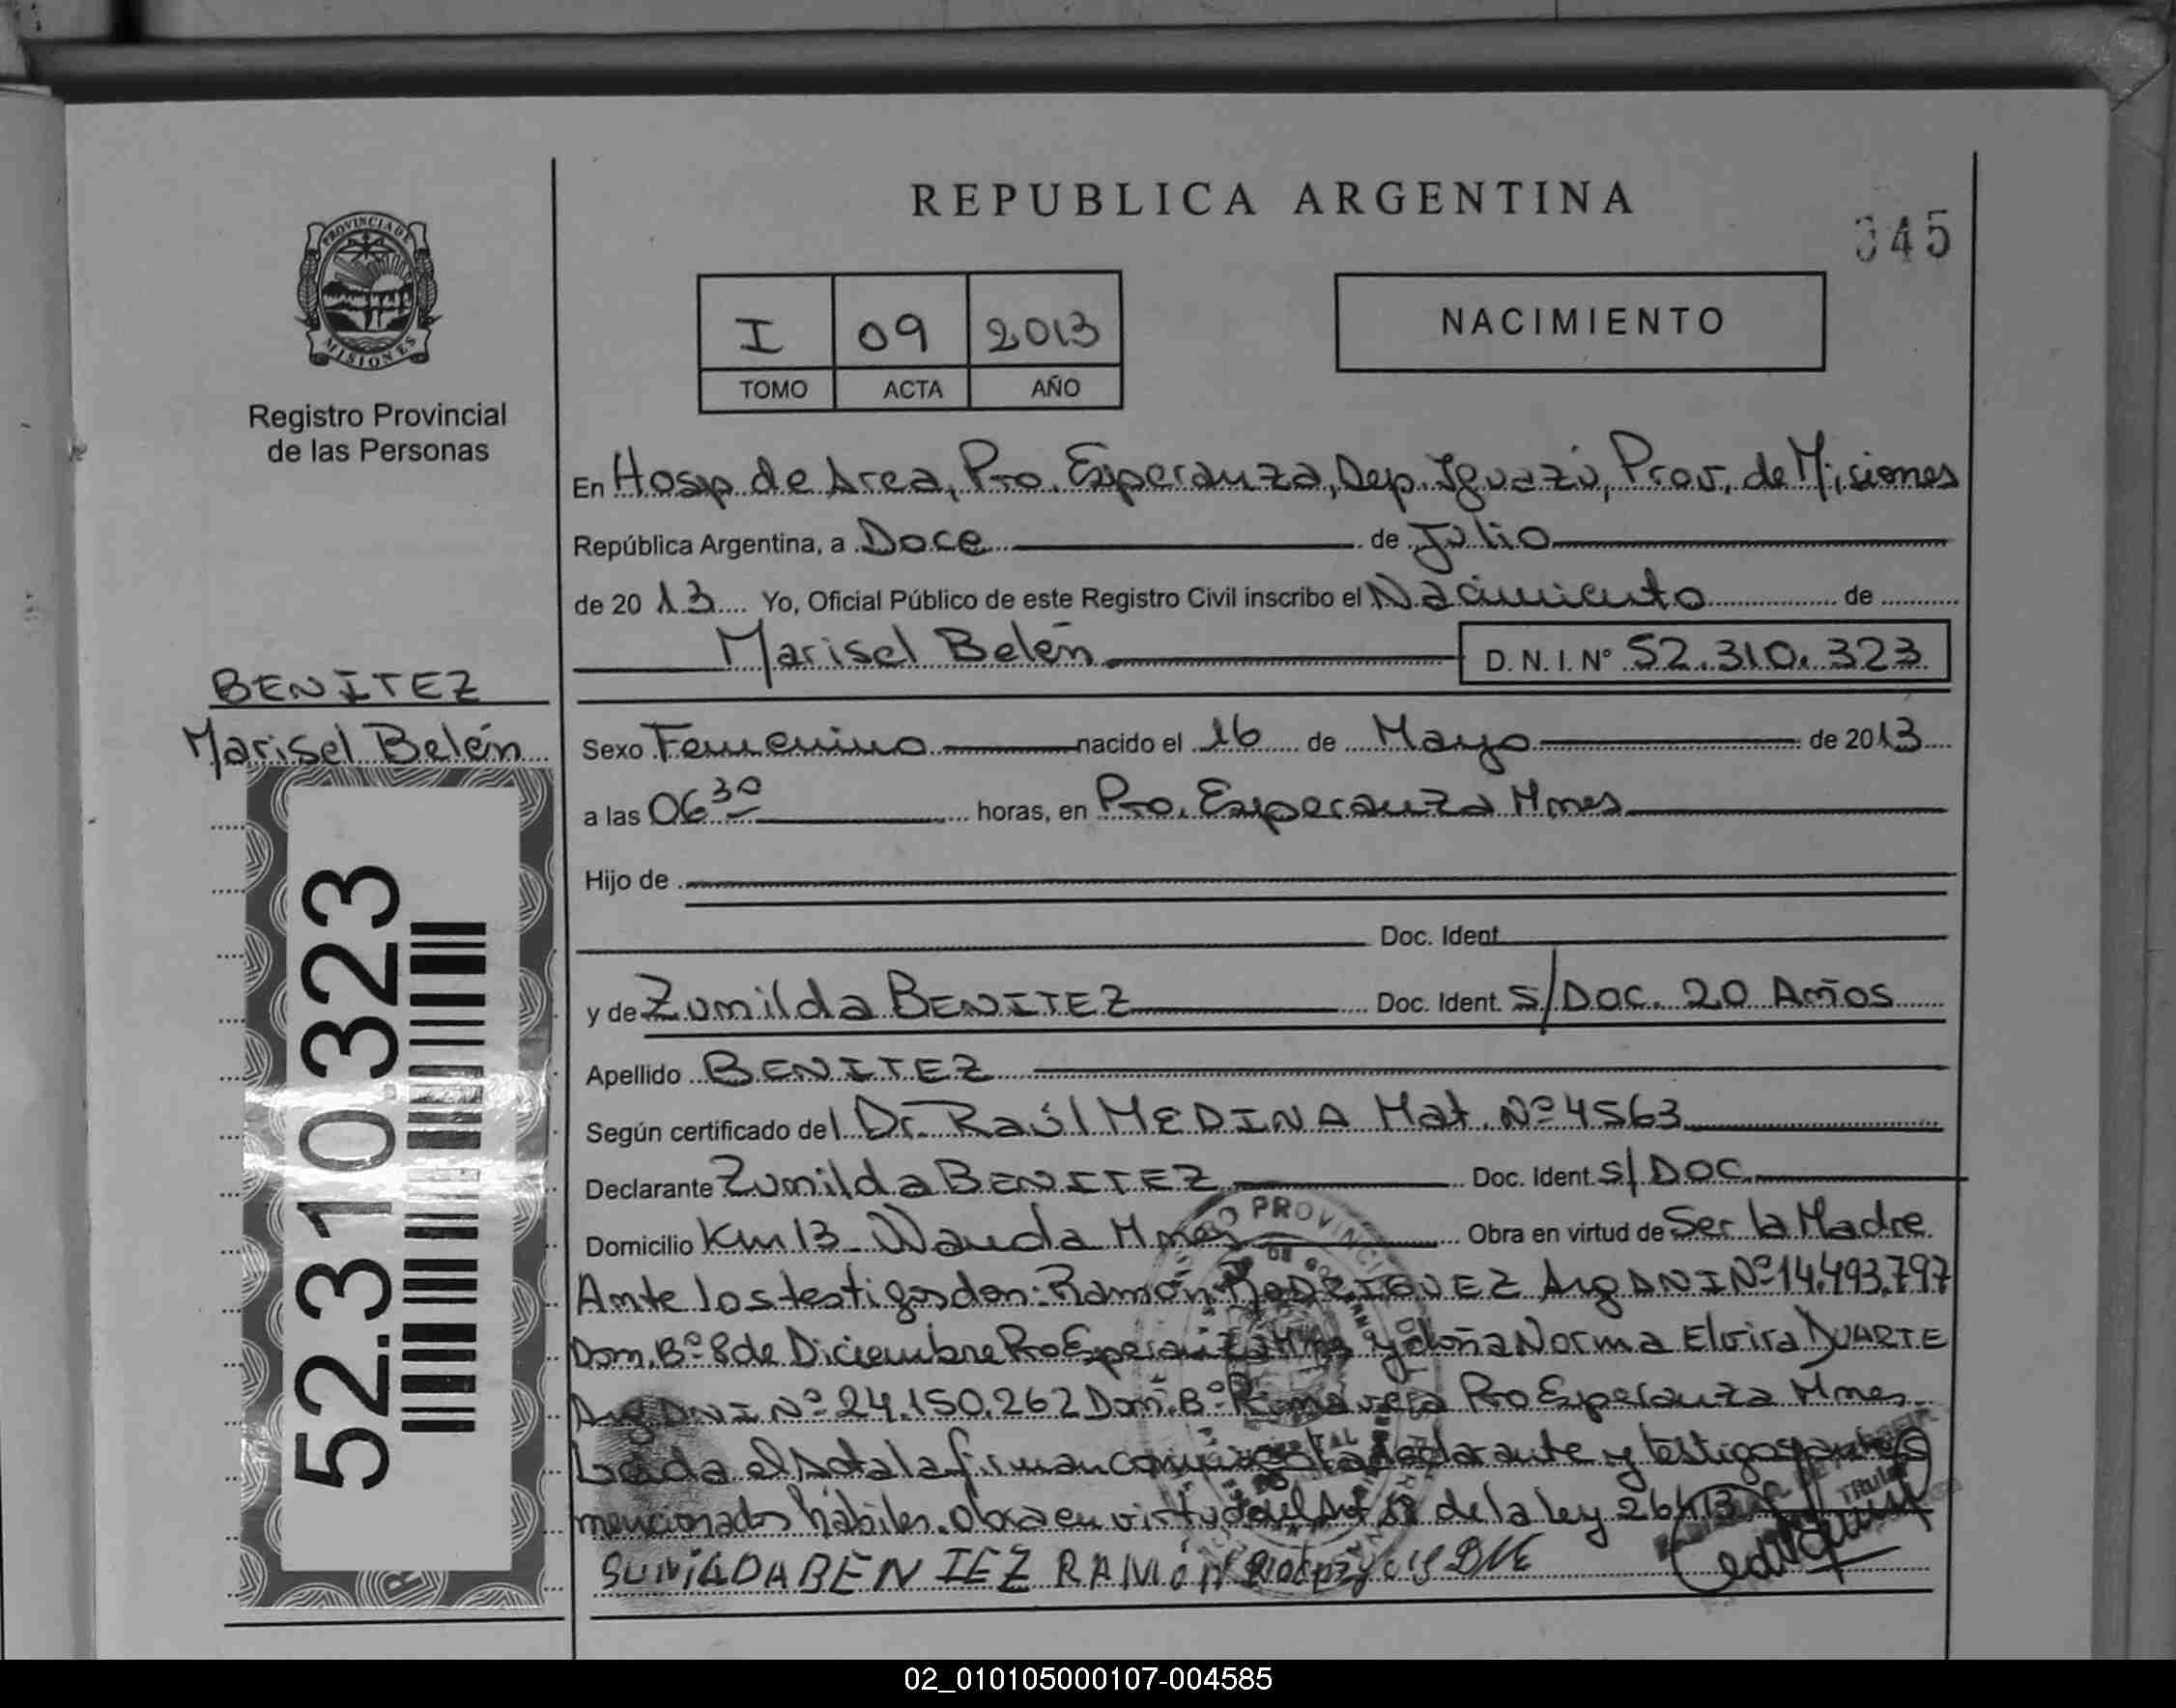 REPUBLICA ARGENTINA
045
PROVINCIA DE
MISIONES
Registro Provincial
de las Personas
I 09 2013
TOMO ACTA AÑO
NACIMIENTO
En Hosp. de Area, Pto. Esperanza, Dep. Iguazú, Prov. de Misiones
República Argentina, a Doce de Julio
de 20 13 Yo, Oficial Público de este Registro Civil inscribo el Nacimiento de
Marisel Belén D. N. I. Nº 52.310.323
BENITEZ
Marisel Belén
Sexo Femenino nacido el 16 de Mayo de 2013
a las 06 30 horas, en Pto. Esperanza Mnes
Hijo de
Doc. Ident
y de Zunilda BENITEZ Doc. Ident. S/Doc. 20 Años
Apellido BENITEZ
Según certificado del Dr. Raúl MEDINA Mat. Nº 4563
Declarante Zunilda BENITEZ Doc. Ident. S/DOC
Domicilio Km 13 - Wanda Mnes Obra en virtud de Ser la Madre
Ante los testigos don: Ramón RODRIGUEZ Arg DNI Nº 14.493.797
Dom. Bº 8 de Diciembre Pto Esperanza Mnes y doña Norma Elvira DUARTE
Arg DNI Nº 24.150.262 Dom. Bº Primavera Pto Esperanza Mnes
Leída el Acta la firman conmigo la declarante y testigos antes
mencionados hábiles. Obra en virtud del Art de la ley 26413
BENIEZ RAMÓN
52.310.323
02_010105000107-004585